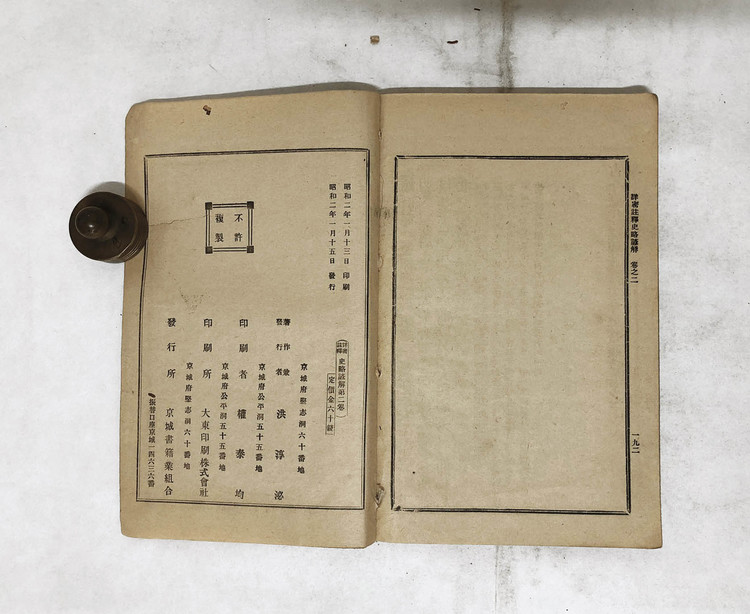 詳密註釋史略諺解 卷之二
一九二
昭和二年一月十三日 印刷
昭和二年一月十五日 發行
不許
複製
詳密
註釋
史略諺解第二卷
定價金六十錢
京城府堅志洞六十番地
著作兼
發行者 洪淳泌
京城府公平洞五十五番地
印刷者 權泰均
京城府公平洞五十五番地
印刷所 大東印刷株式會社
京城府堅志洞六十番地
發行所 京城書籍業組合
振替口座京城一四六三六番